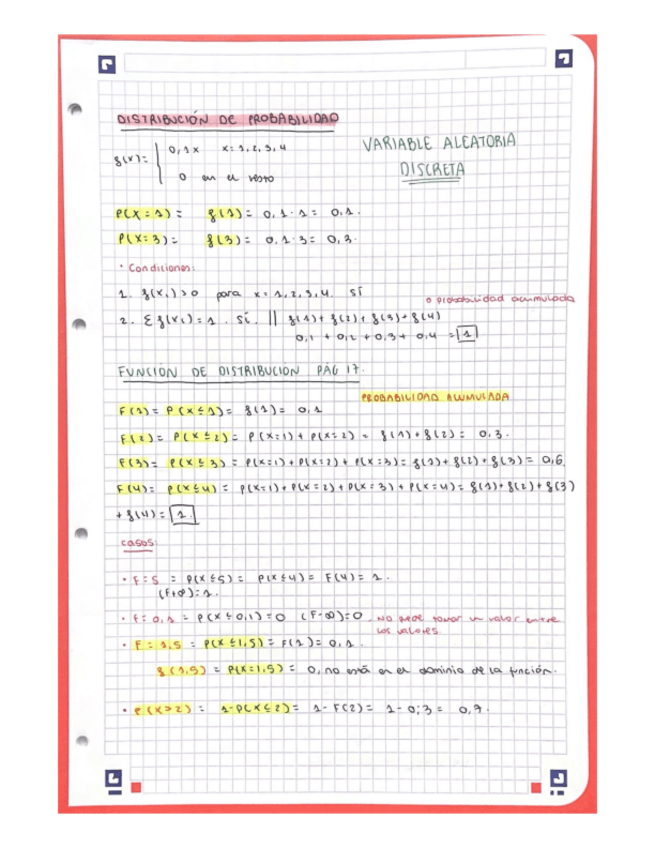 DISTRIBUCIÓN DE PROBABILIDAD
VARIABLE ALEATORIA
DISCRETA
f(x) = { 0,1x x = 1, 2, 3, 4
0 en el resto
P(X = 1) = f(1) = 0,1 · 1 = 0,1.
P(X = 3) = f(3) = 0,1 · 3 = 0,3.
· Condiciones:
1. f(xi) > 0 para x = 1, 2, 3, 4. SÍ
o probabilidad acumulada
2. Σ f(xi) = 1. SÍ. || f(1) + f(2) + f(3) + f(4)
0,1 + 0,2 + 0,3 + 0,4 = 1
FUNCIÓN DE DISTRIBUCION PÁG 17.
PROBABILIDAD ACUMULADA
F(1) = P(X ≤ 1) = f(1) = 0,1
F(2) = P(X ≤ 2) = P(X=1) + P(X=2) = f(1) + f(2) = 0,3.
F(3) = P(X ≤ 3) = P(X=1) + P(X=2) + P(X=3) = f(1) + f(2) + f(3) = 0,6
F(4) = P(X ≤ 4) = P(X=1) + P(X=2) + P(X=3) + P(X=4) = f(1) + f(2) + f(3)
+ f(4) = 1.
CASOS:
· F = 5 = P(X ≤ 5) = P(X ≤ 4) = F(4) = 1.
(F+∞) = 1.
· F = 0,1 = P(X ≤ 0,1) = 0 (F-∞) = 0. NO puede tomar un valor entre
los valores.
· F = 1,5 = P(X ≤ 1,5) = F(1) = 0,1.
f(1,5) = P(X=1,5) = 0, no está en el dominio de la función.
· P(X>2) = 1-P(X ≤ 2) = 1 - F(2) = 1 - 0,3 = 0,7.